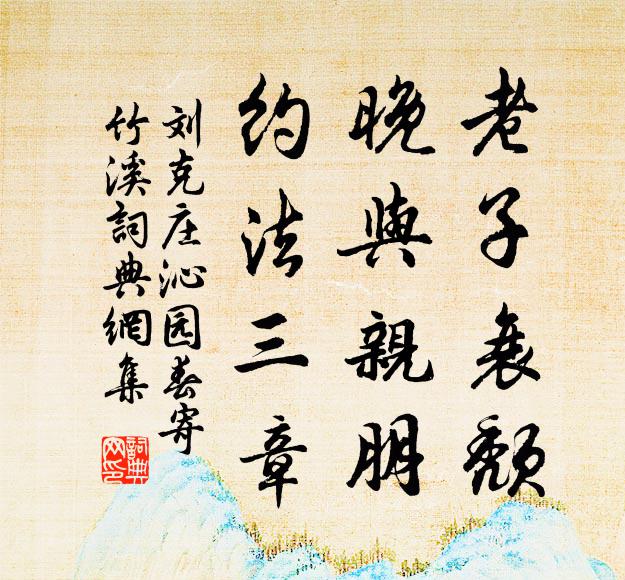 老子衰颓
晚與親朋
約法三章
刘克庄沁园春寄
竹溪詞典網集
詞典网印